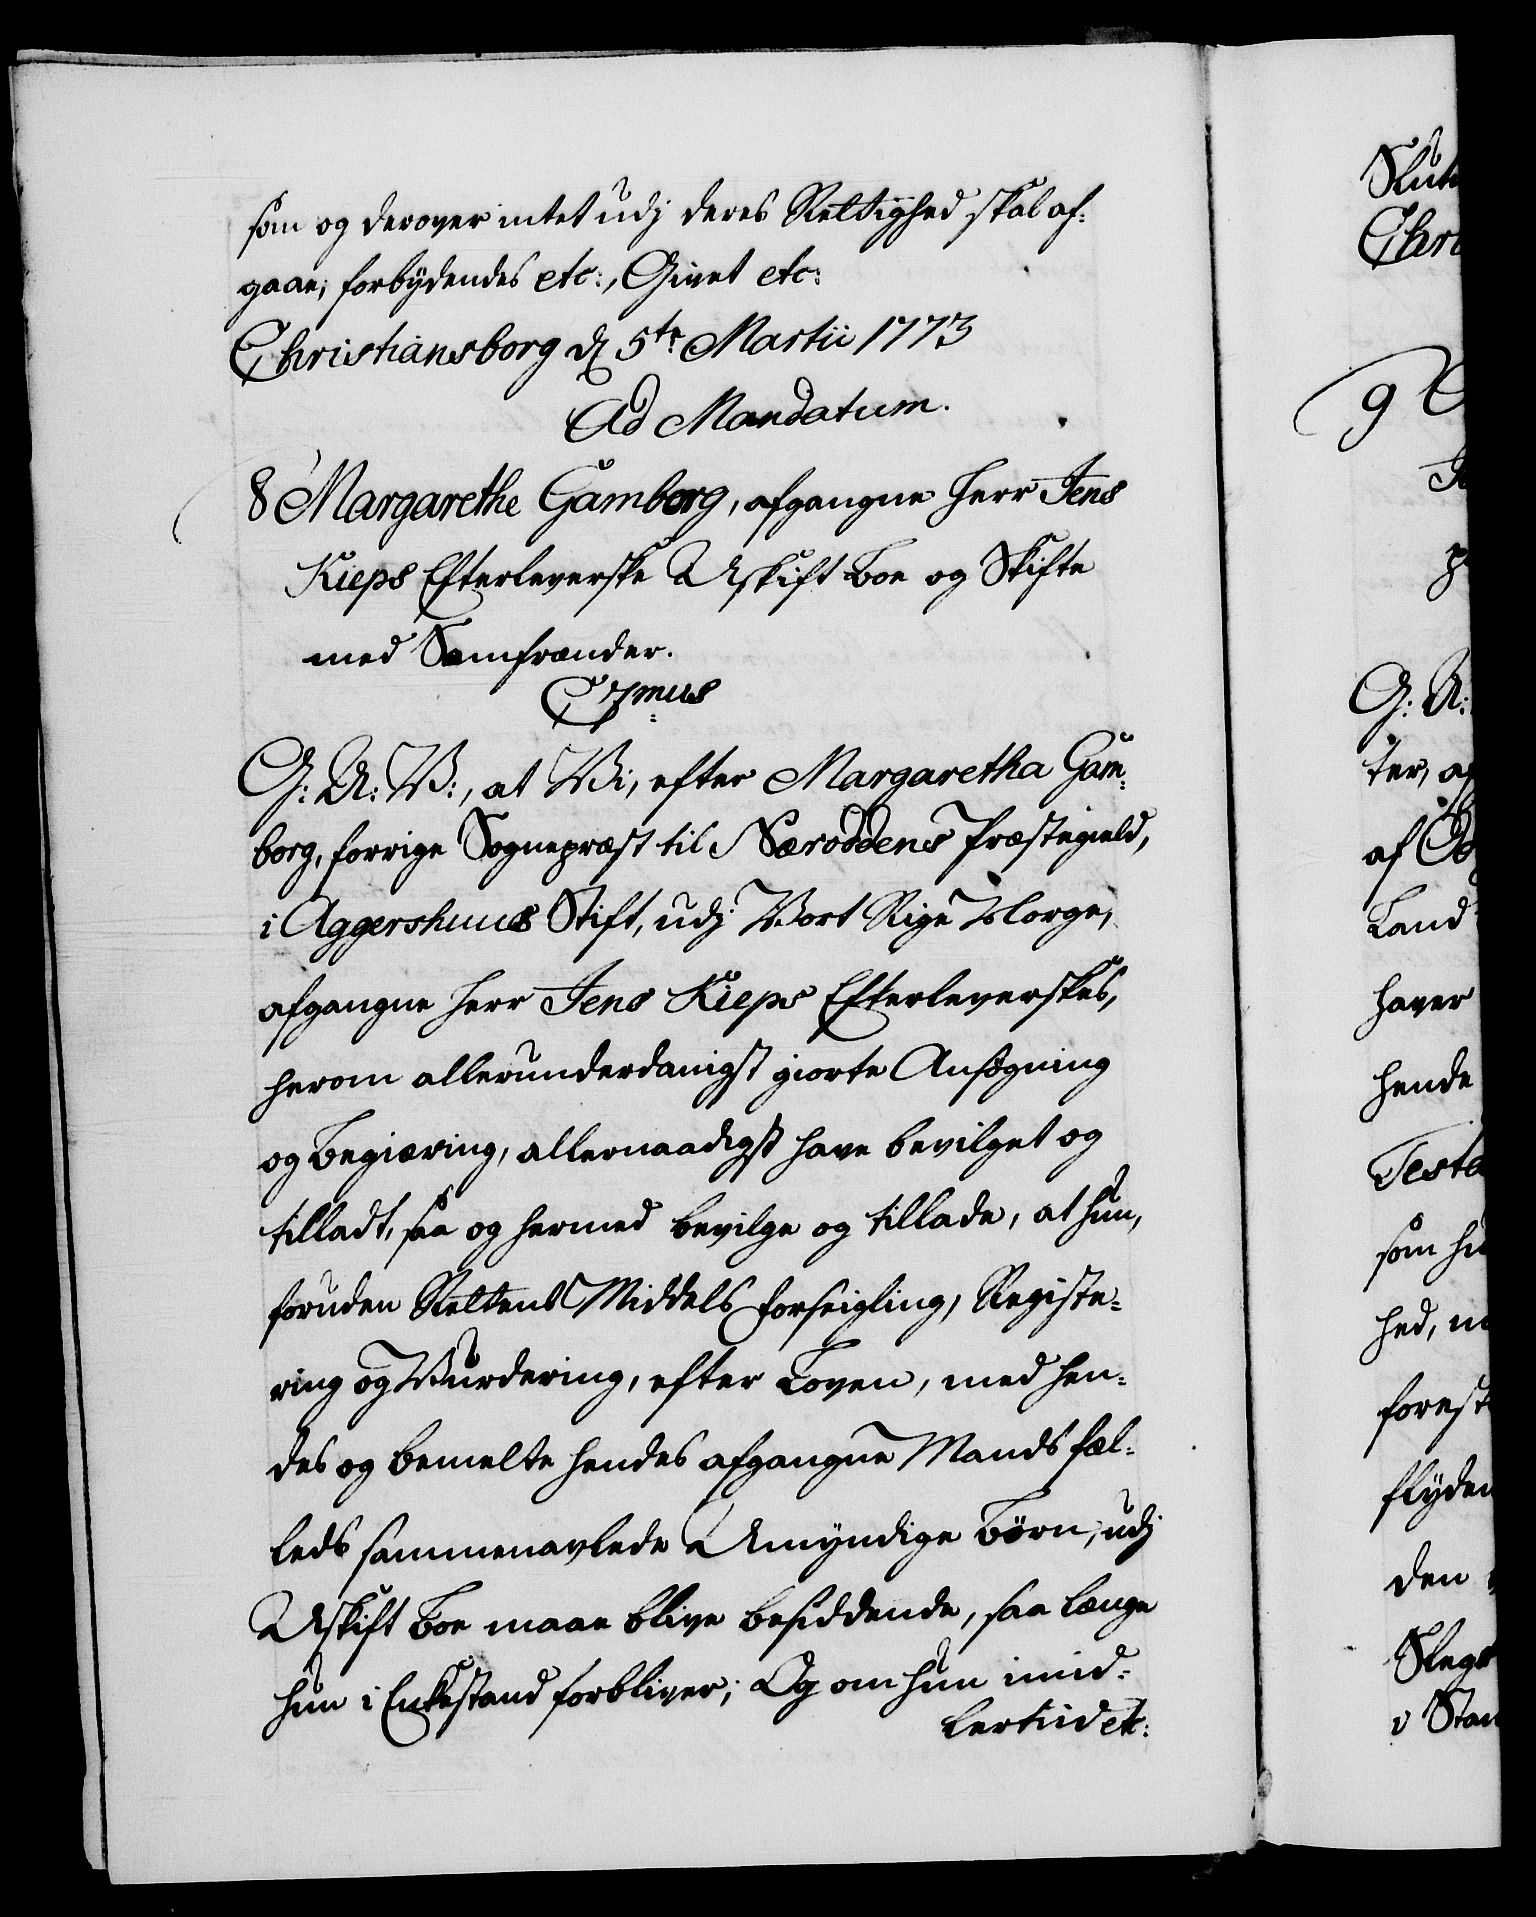 som og derover intet udj deres Rettighed skal af-
gaae; forbydendes etc:, Givet etc:
Christiansborg d 5te Martii 1773
Ad Mandatum.
8 Margarethe Gamborg, afgangne Herr Jens
Kieps Efterleverske Uskift Boe og Skifte
med Samfrænder.
C7mus
G: A: V:, at Vi, efter Margaretha Gam-
borg, forrige Sognepræst til Næroddens Præstegield,
i Aggershuus Stift, udj Vort Rige Norge,
afgangne Herr Jens Kieps Efterleverskes,
herom allerunderdanigst giorte Ansøgning
og Begiæring, allernaadigst have bevilget og
tilladt, saa og hermed bevilge og tillade, at hun,
foruden Rettens Middels Forseigling, Registe-
ring og Vurdering, efter Loven, med hen-
des og bemelte hendes afgangne Mands fæl-
leds sammenavlede Umyndige Børn, udj
Uskift Boe maae blive besiddende, saa længe
hun i Enkestand forbliver; Og om hun imid-
lertiid etc:
Slut
Chri
9
G: A:
ter, af
af
Land
haver
hende
Teste
som hu
hed, m
forest
flyden
den
Slegt
v Stan